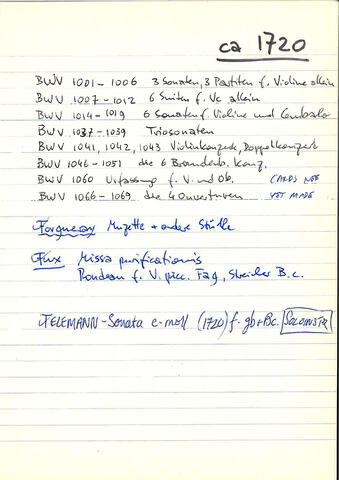 ca 1720
BWV 1001 - 1006 3 Sonaten, 3 Partiten f. Violine allein
BWV 1007 - 1012 6 Suiten f. Vc allein
BWV 1014 - 1019 6 Sonaten f. Violine und Cembalo
BWV 1037 - 1039 Triosonaten
BWV 1041, 1042, 1043 Violinkonzerte, Doppelkonzert
BWV 1046 - 1051 die 6 Brandenb. Konz.
BWV 1060 Urfassung f. V. und Ob. NOT
BWV 1066 - 1069 die 4 Ouverturen YET MADE
Forqueray Muzette + andere Stücke
Fux Missa purificationis
Rondeau f. V. picc. Fag, Streicher B.c.
TELEMANN - Sonata e-moll (1720) f. gb + Bc.